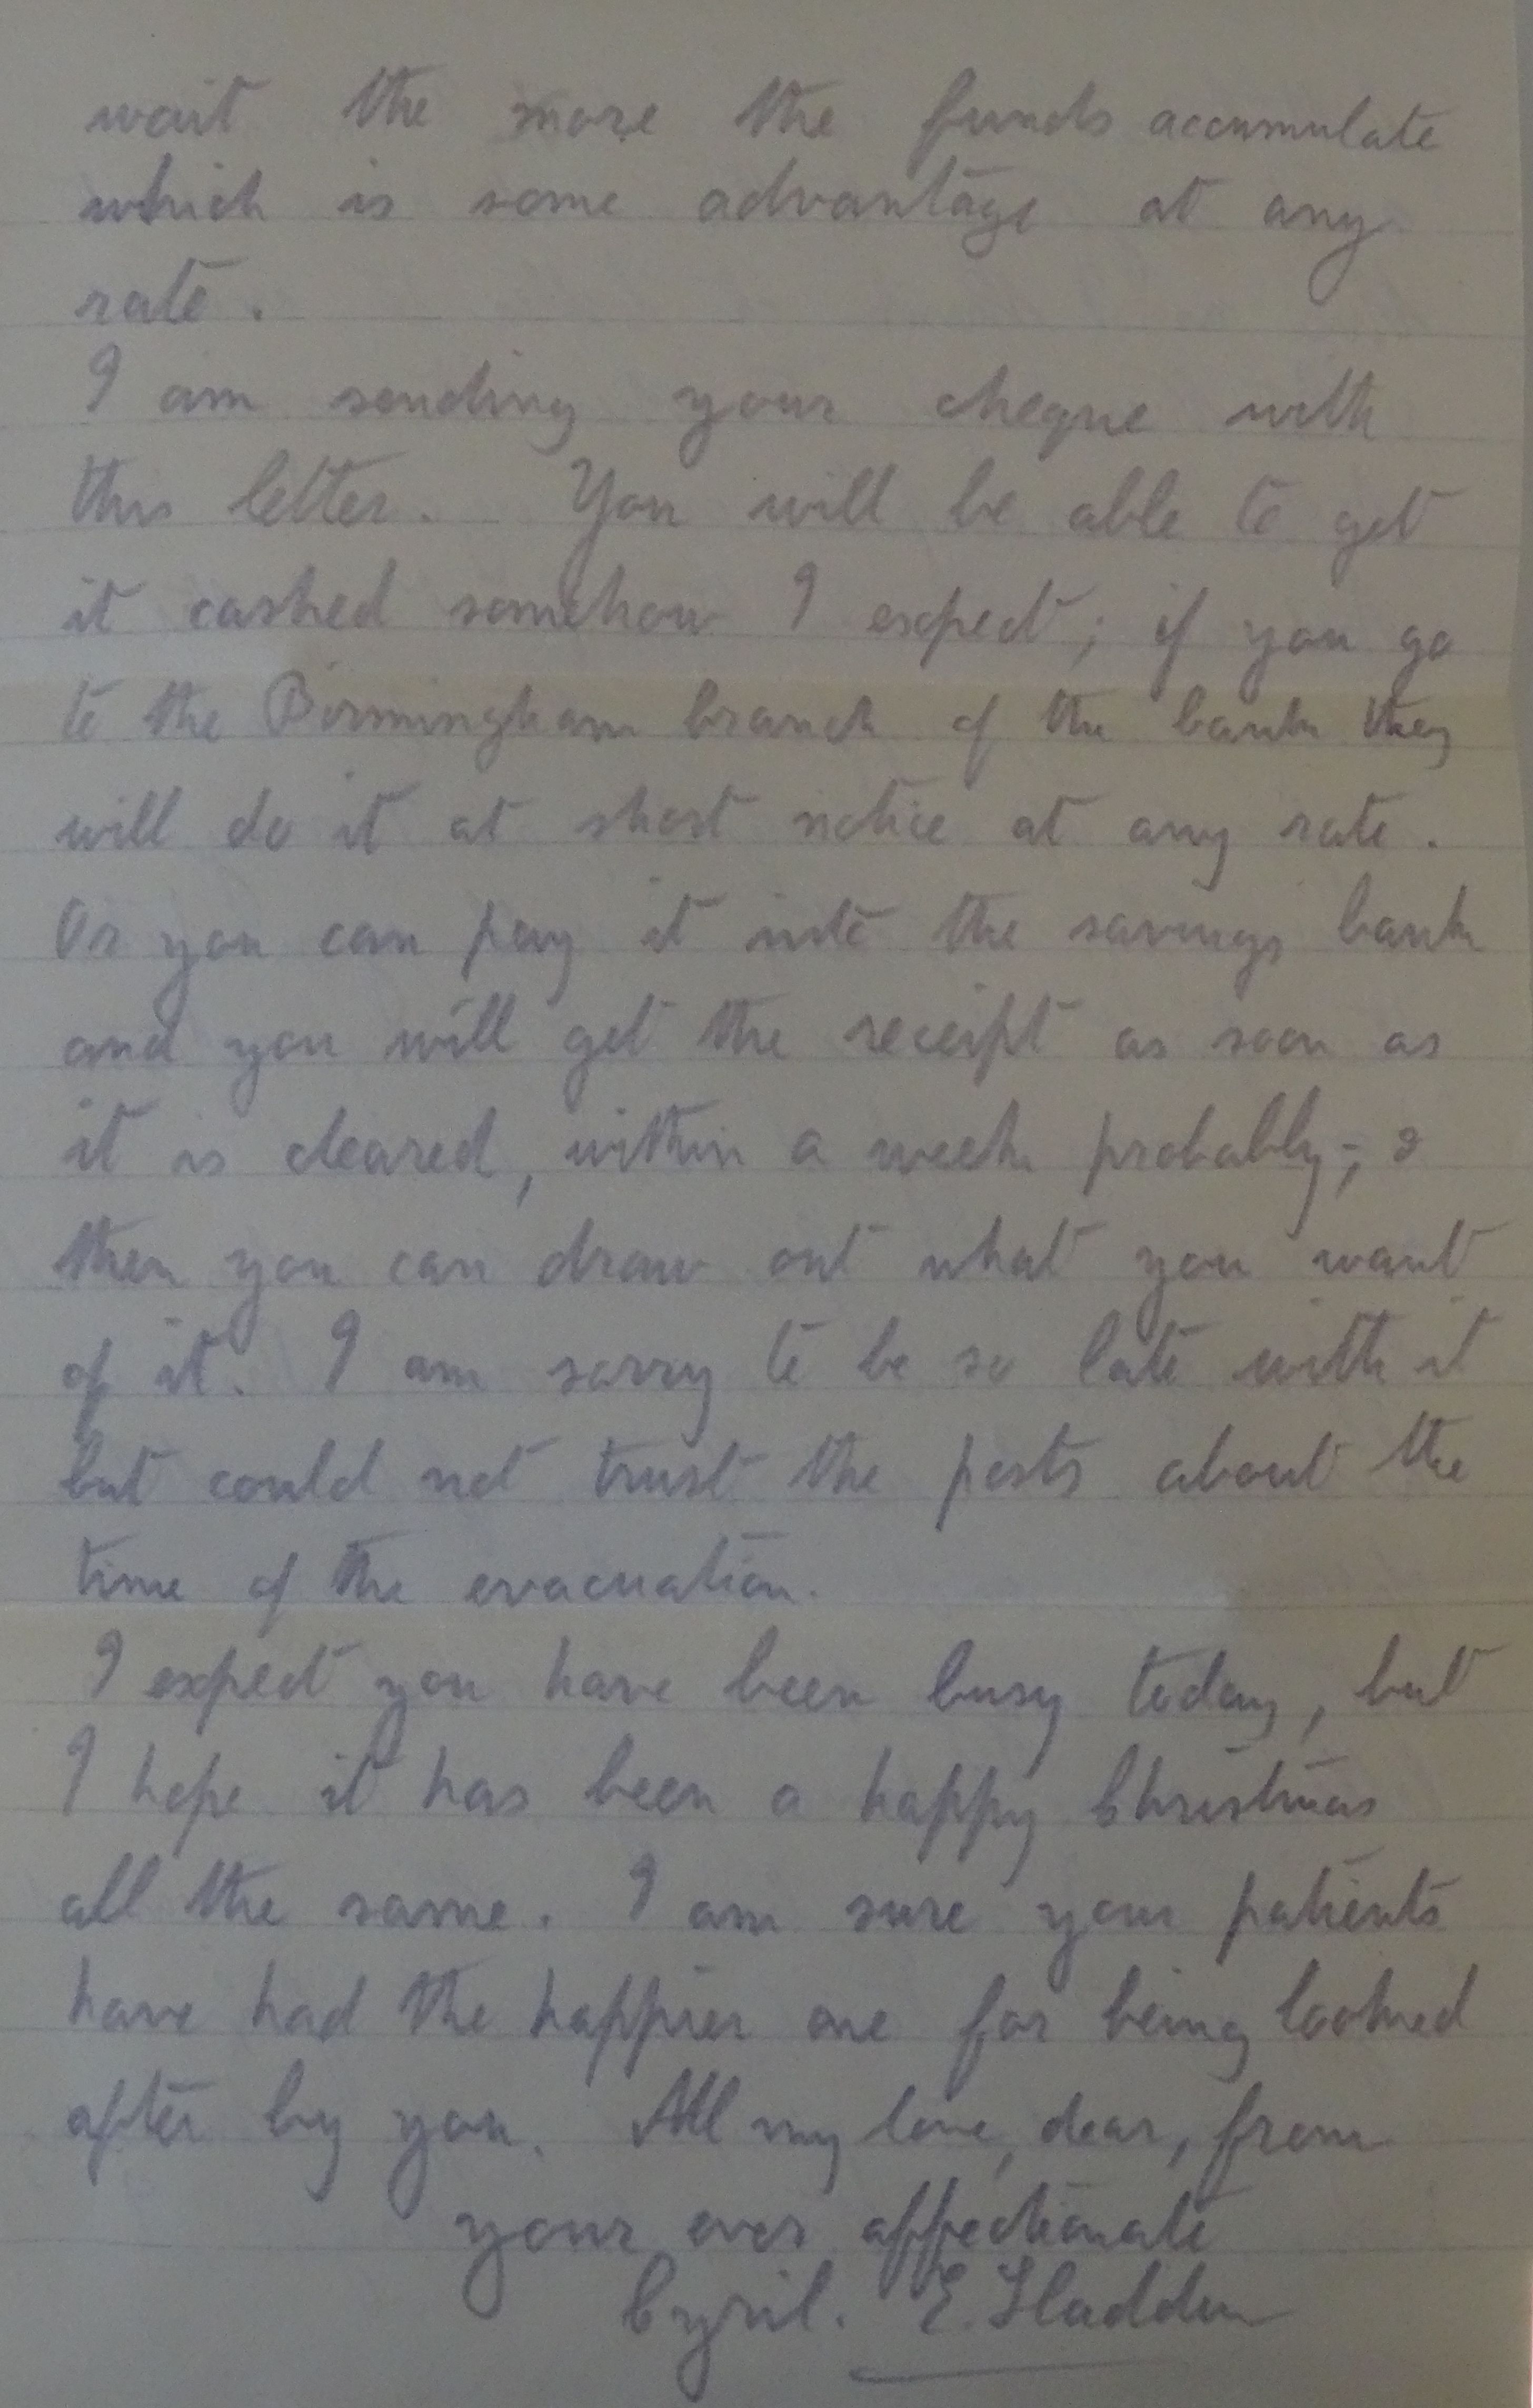 wait the more the funds accumulate
which is some advantage at any
rate.
I am sending your cheque with
this letter. You will be able to get
it cashed somehow I expect; if you go
to the Birmingham branch of the bank they
will do it at short notice at any rate.
Or you can pay it into the savings bank
and you will get the receipt as soon as
it is cleared, within a week probably; &
then you can draw out what you want
of it. I am sorry to be so late with it
but could not trust the posts about the
time of the evacuation.
I expect you have been busy today, but
I hope it has been a happy Christmas
all the same. I am sure your patients
have had the happier one for being looked
after by you. All my love, dear, from
your ever affectionate
Cyril. E. Sladden